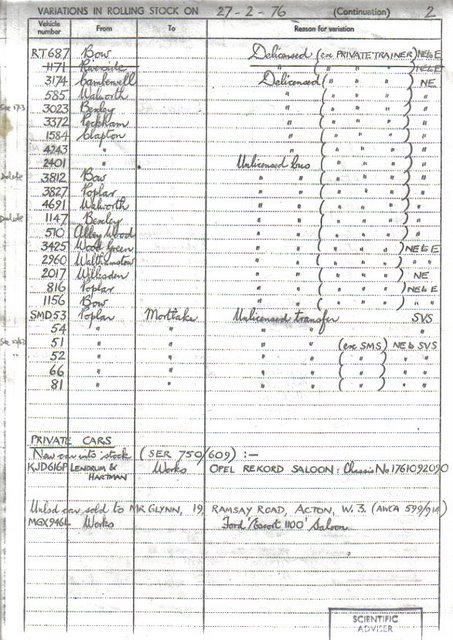 VARIATIONS IN ROLLING STOCK ON 27-2-76 (Continuation) 2
Vehicle number From To Reason for variation
RT687 Bow Delicensed (ex PRIVATE TRAINER) NE to E
1171 Riverside " " " NE to E
3174 Camberwell Delicensed ( " " ) NE
585 Walworth " ( " " ) "
3023 Bexley " ( " " ) "
3372 Peckham " ( " " ) "
1584 Clapton " ( " " ) "
4243 " " ( " " ) "
2401 " Unlicensed bus ( " " ) "
Delete 3812 Bow " " ( " " ) "
3827 Poplar " " ( " " ) "
4691 Walworth " " ( " " ) "
Delete 1147 Bexley " " ( " " ) "
510 Abbey Wood " " ( " " ) "
3425 Wood Green " " ( " " ) NE to E
2960 Walthamstow " " ( " " ) " "
2017 Willesden " " ( " " ) NE
816 Poplar " " ( " " ) NE to E
1156 Bow " " ( " " ) " "
SMD53 Poplar Mortlake Unlicensed transfer SVS
54 " " " " "
51 " " " " (ex SMS) NE to SVS
52 " " " " ( " ) " "
66 " " " " ( " ) " "
81 " " " " ( " ) " "
PRIVATE CARS
New car into stock (SER 750/609) :—
KJD616P LENDRUM & HARTMAN Works OPEL REKORD SALOON: Chassis No 1761092090
Unlsd car sold to MR GLYNN, 19, RAMSAY ROAD, ACTON, W.3. (AWCA 599/914)
MGX946L Works Ford 'Escort 1100' Saloon
SCIENTIFIC
ADVISER